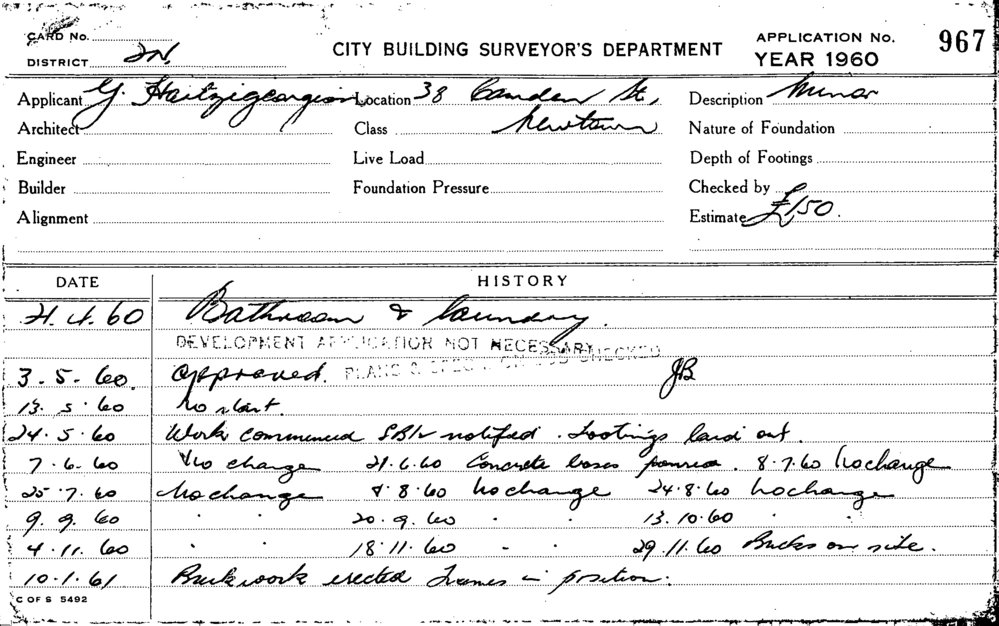 CARD No.
DISTRICT 2N. CITY BUILDING SURVEYOR'S DEPARTMENT APPLICATION No. 967
YEAR 1960
Applicant G. Hatzigeorgiou Location 38 Camden St, Description Minor
Architect Class Newtown Nature of Foundation
Engineer Live Load Depth of Footings
Builder Foundation Pressure Checked by
Alignment Estimate £150.
DATE HISTORY
21.4.60 Bathroom & laundry.
DEVELOPMENT APPLICATION NOT NECESSARY
PLANS & SPEC CHECKED
3.5.60. Approved. JB
13.5.60 No start.
24.5.60 Work commenced notified. Footings laid out.
7.6.60 No change 21.6.60 Concrete bases poured. 8.7.60 No change
25.7.60 No change 8.8.60 No change 24.8.60 No change
9.9.60 " " 20.9.60 " " 13.10.60 " "
4.11.60 " " 18.11.60 " " 29.11.60 Bricks on site.
10.1.61 Brickwork erected Frames in position.
C OF S 5492